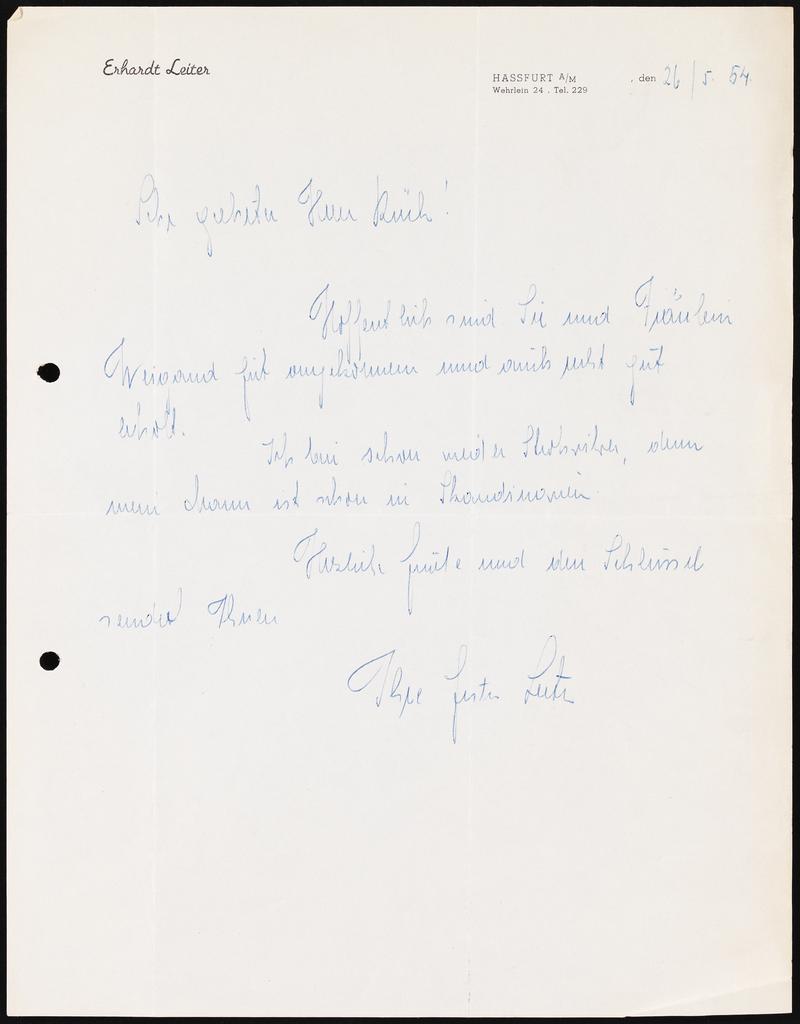 Erhardt Leiter
HASSFURT A/M , den 26/5. 54.
Wehrlein 24 . Tel. 229
Sehr geehrter Herr Rüth!
Hoffentlich sind Sie und Fräulein
Weigand gut angekommen und auch recht gut
erholt.
Ich bin schon wieder Strohwitwe, denn
mein Mann ist schon in Skandinavien.
Herzliche Grüße und den Schlüssel
sendet Ihnen
Ihre Leiter